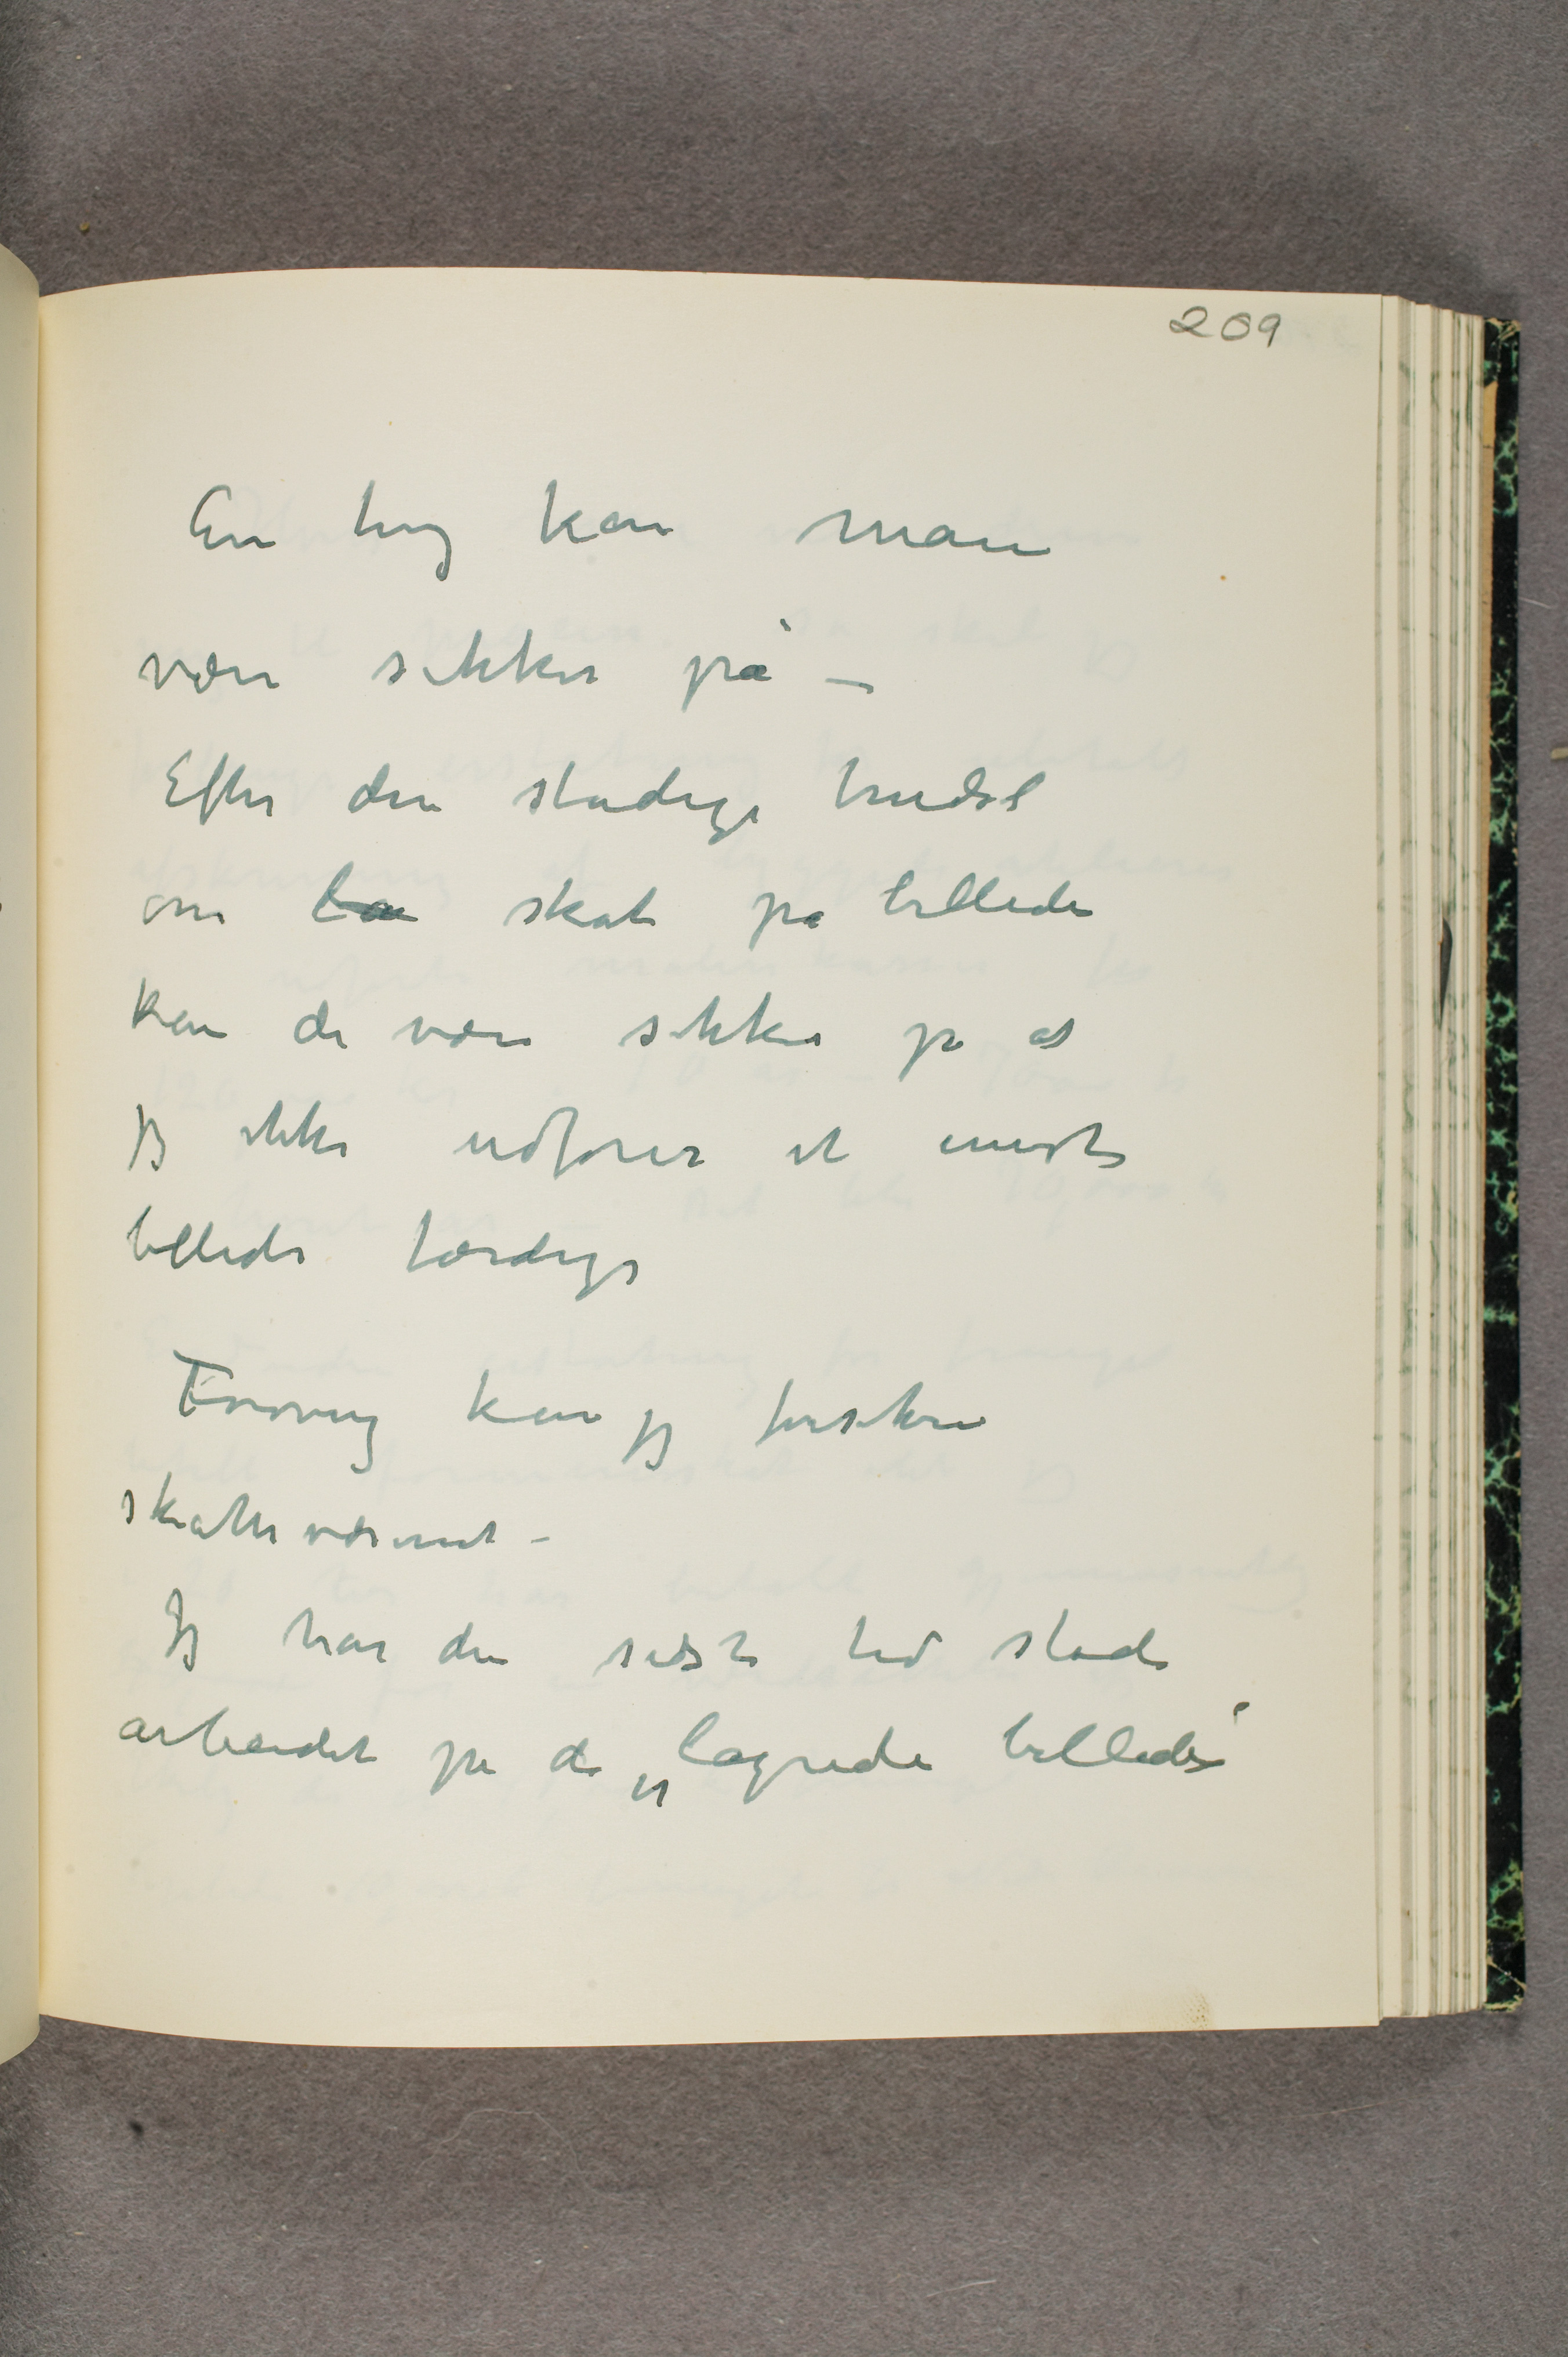 209
En ting kan man
være sikker på –
Efter den stadige trudsel
om skat på billeder
kan de være sikker på at
jeg ikke udfører et eneste
billede færdigt
Forøvrig kan jeg forsikre
skattevæsenet –
Jeg har den sidste tid stadi
arbeidet på de „lagrede billeder“